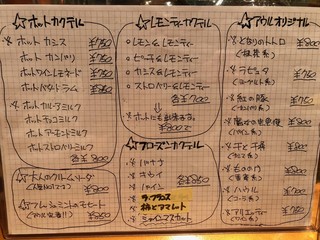 ☆ホットカクテル
※ホット カシス ¥750
ホット カンパリ ¥750
ホットワインレモネード ¥750
ホットバタードラム ¥850
※ホットカルーアミルク
ホットチョコミルク
ホットアーモンドミルク
ホットストロベリーミルク
各¥800
☆大人のクリームソーダ
¥800
☆フレッシュミントのモヒート
¥850
☆レモンティーカクテル
○レモン&レモンティー
○ピーチ&レモンティー
○カシス&レモンティー
○ストロベリー&レモンティー
各¥700
※ホットにも出来ます。
¥800で
☆フローズンカクテル
※バナナ
※キウイ
※パイン
※ラ・フランス
※柿とアマレット
※シャインマスカット
各¥850
☆アウルオリジナル
※となりのトトロ ¥800
(抹茶系)
※ラピュタ ¥750
※紅の豚 ¥750
※魔女の宅急便 ¥800
※千と千尋 ¥800
※もののけ ¥800
※ハウル ¥700
※アリエッティ ¥750